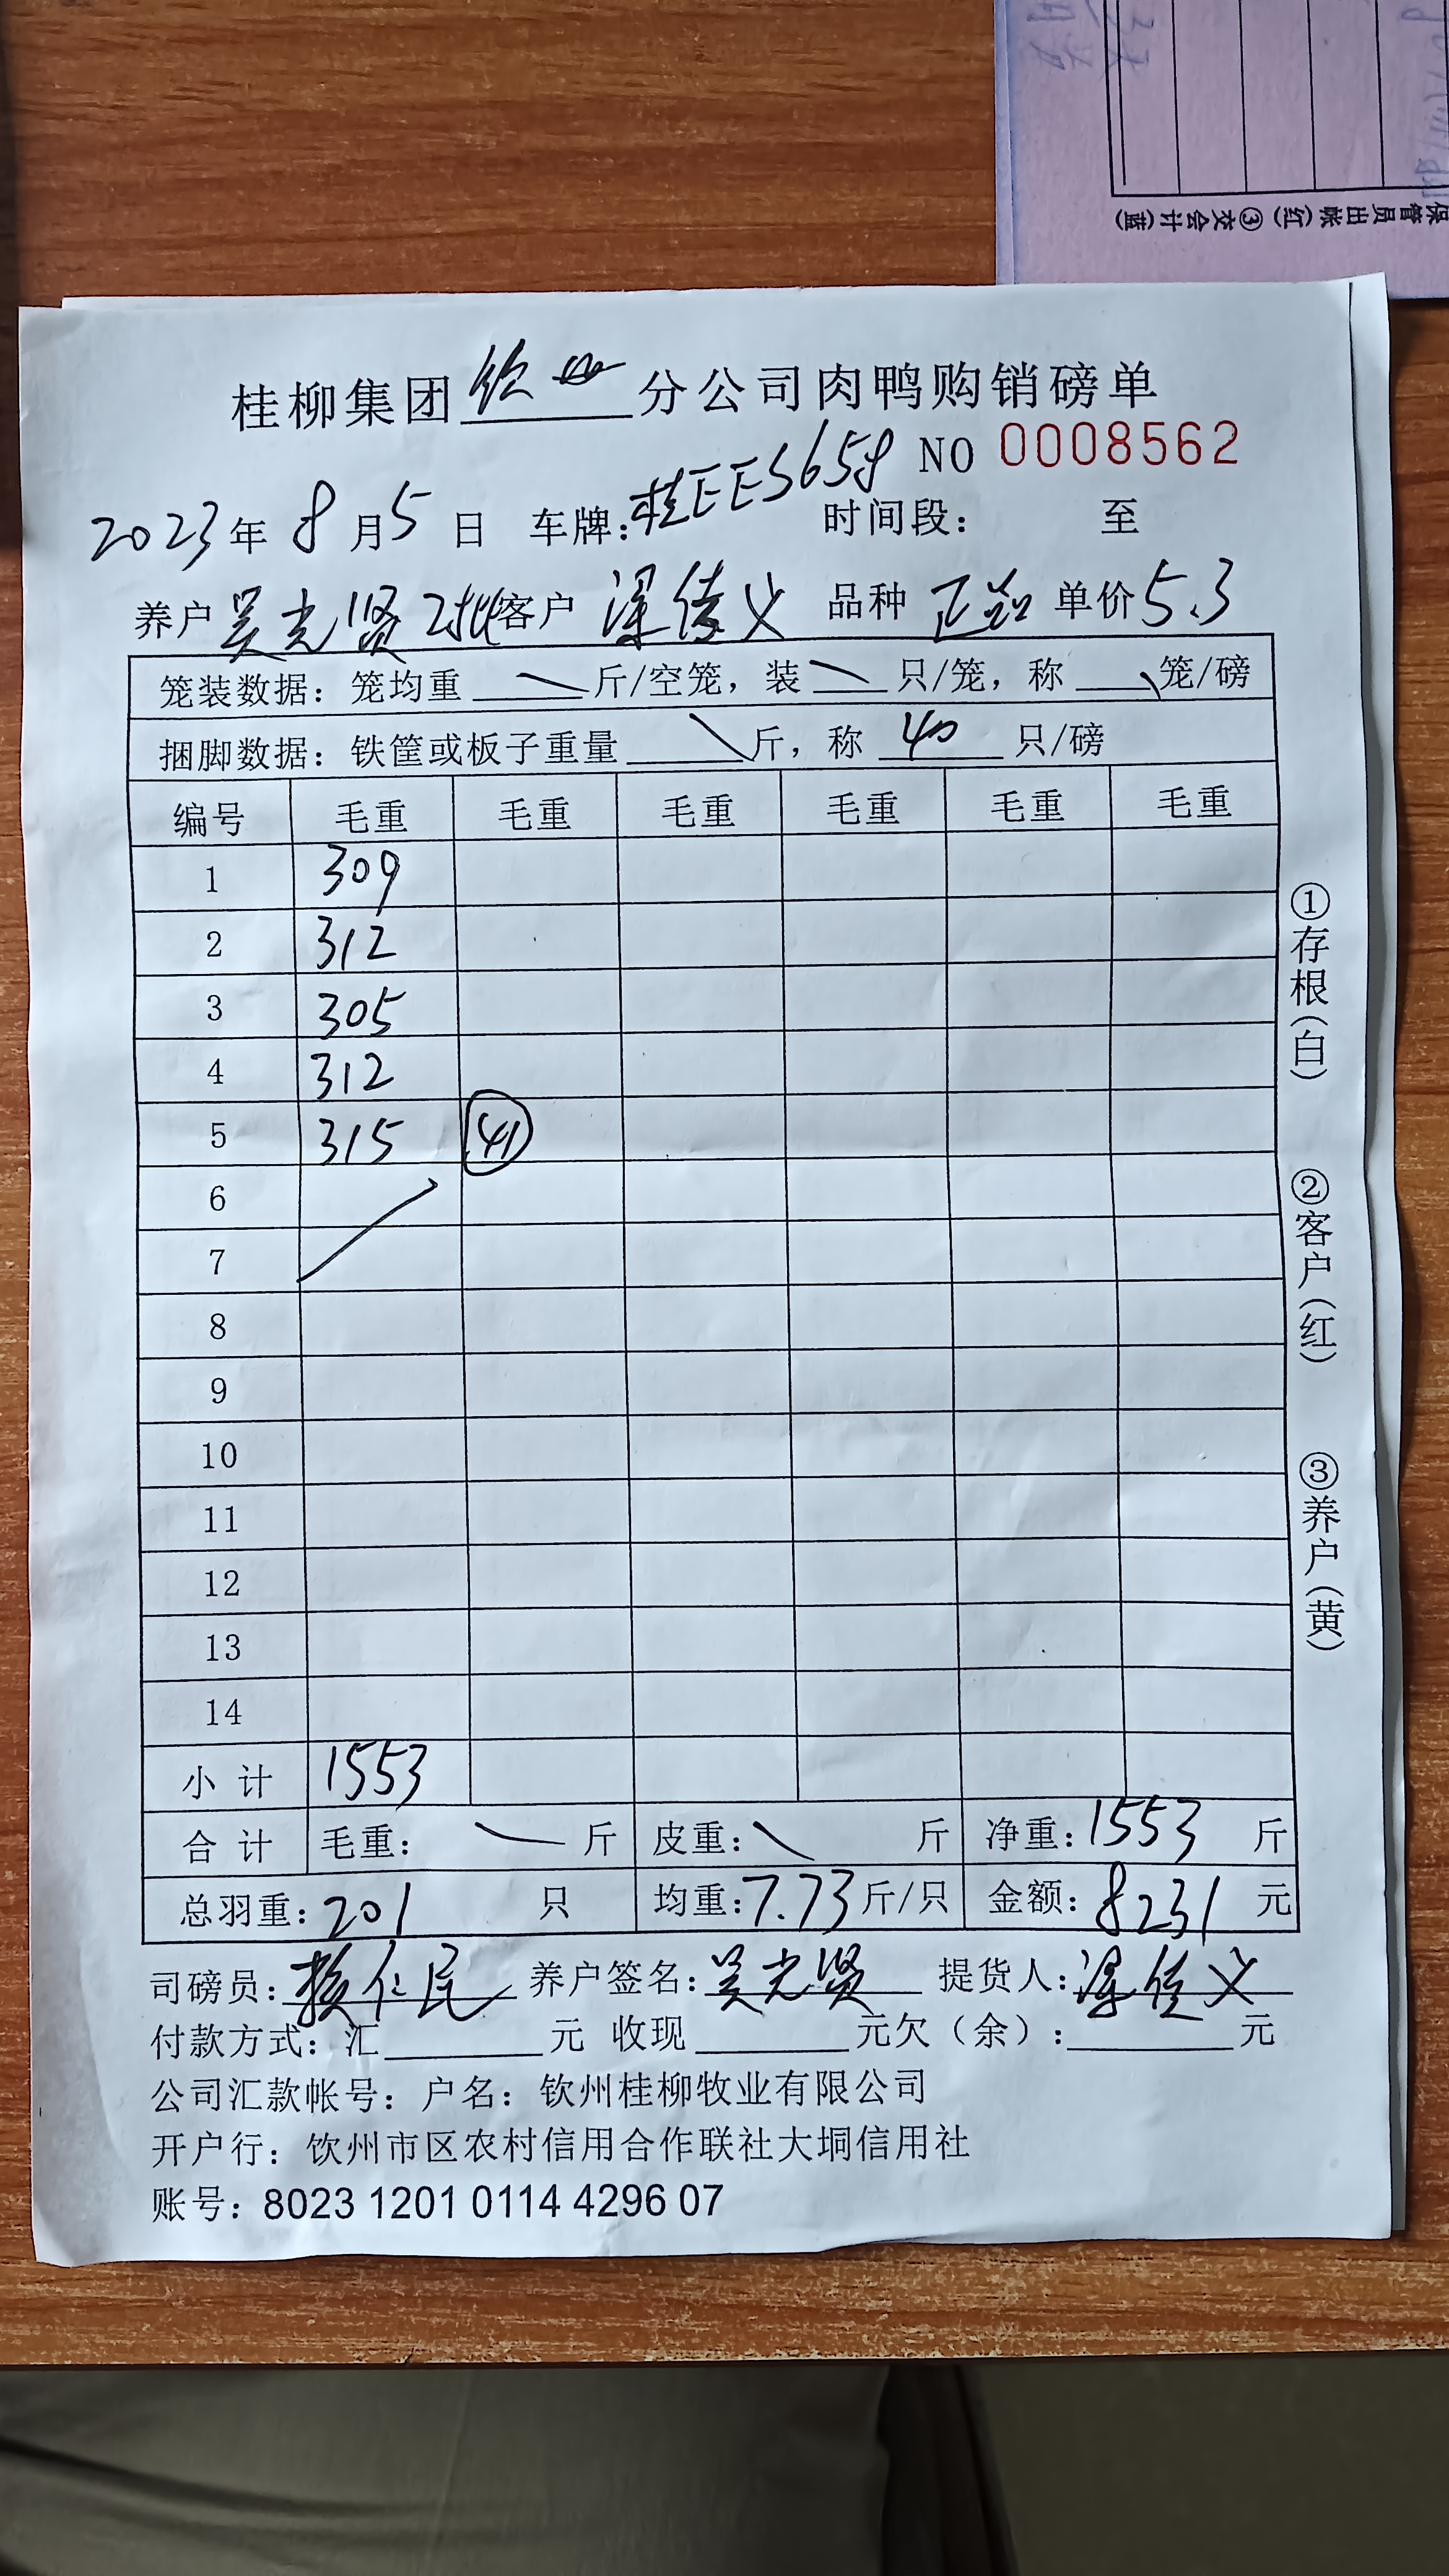 保管员出帐(红) ③交会计(蓝)
桂柳集团 钦州 分公司肉鸭购销磅单
NO 0008562
2023年 8月5日 车牌:桂EES658 时间段: 至
养户 吴光贤2批 客户 梁传义 品种 正 单价5.3
笼装数据: 笼均重 斤/空笼, 装 只/笼, 称 笼/磅
捆脚数据: 铁筐或板子重量 斤, 称 40 只/磅
编号 毛重 毛重 毛重 毛重 毛重 毛重
1 309
2 312
3 305
4 312
5 315 41
6
7
8
9
10
11
12
13
14
小 计 1553
合 计 毛重: 斤 皮重: 斤 净重: 1553 斤
总羽重: 201 只 均重: 7.73 斤/只 金额: 8231 元
司磅员: 赖仁民 养户签名: 吴光贤 提货人: 梁传义
付款方式: 汇 元 收现 元欠(余): 元
公司汇款帐号: 户名: 钦州桂柳牧业有限公司
开户行: 饮州市区农村信用合作联社大垌信用社
账号: 8023 1201 0114 4296 07
①存根(白)
②客户(红)
③养户(黄)